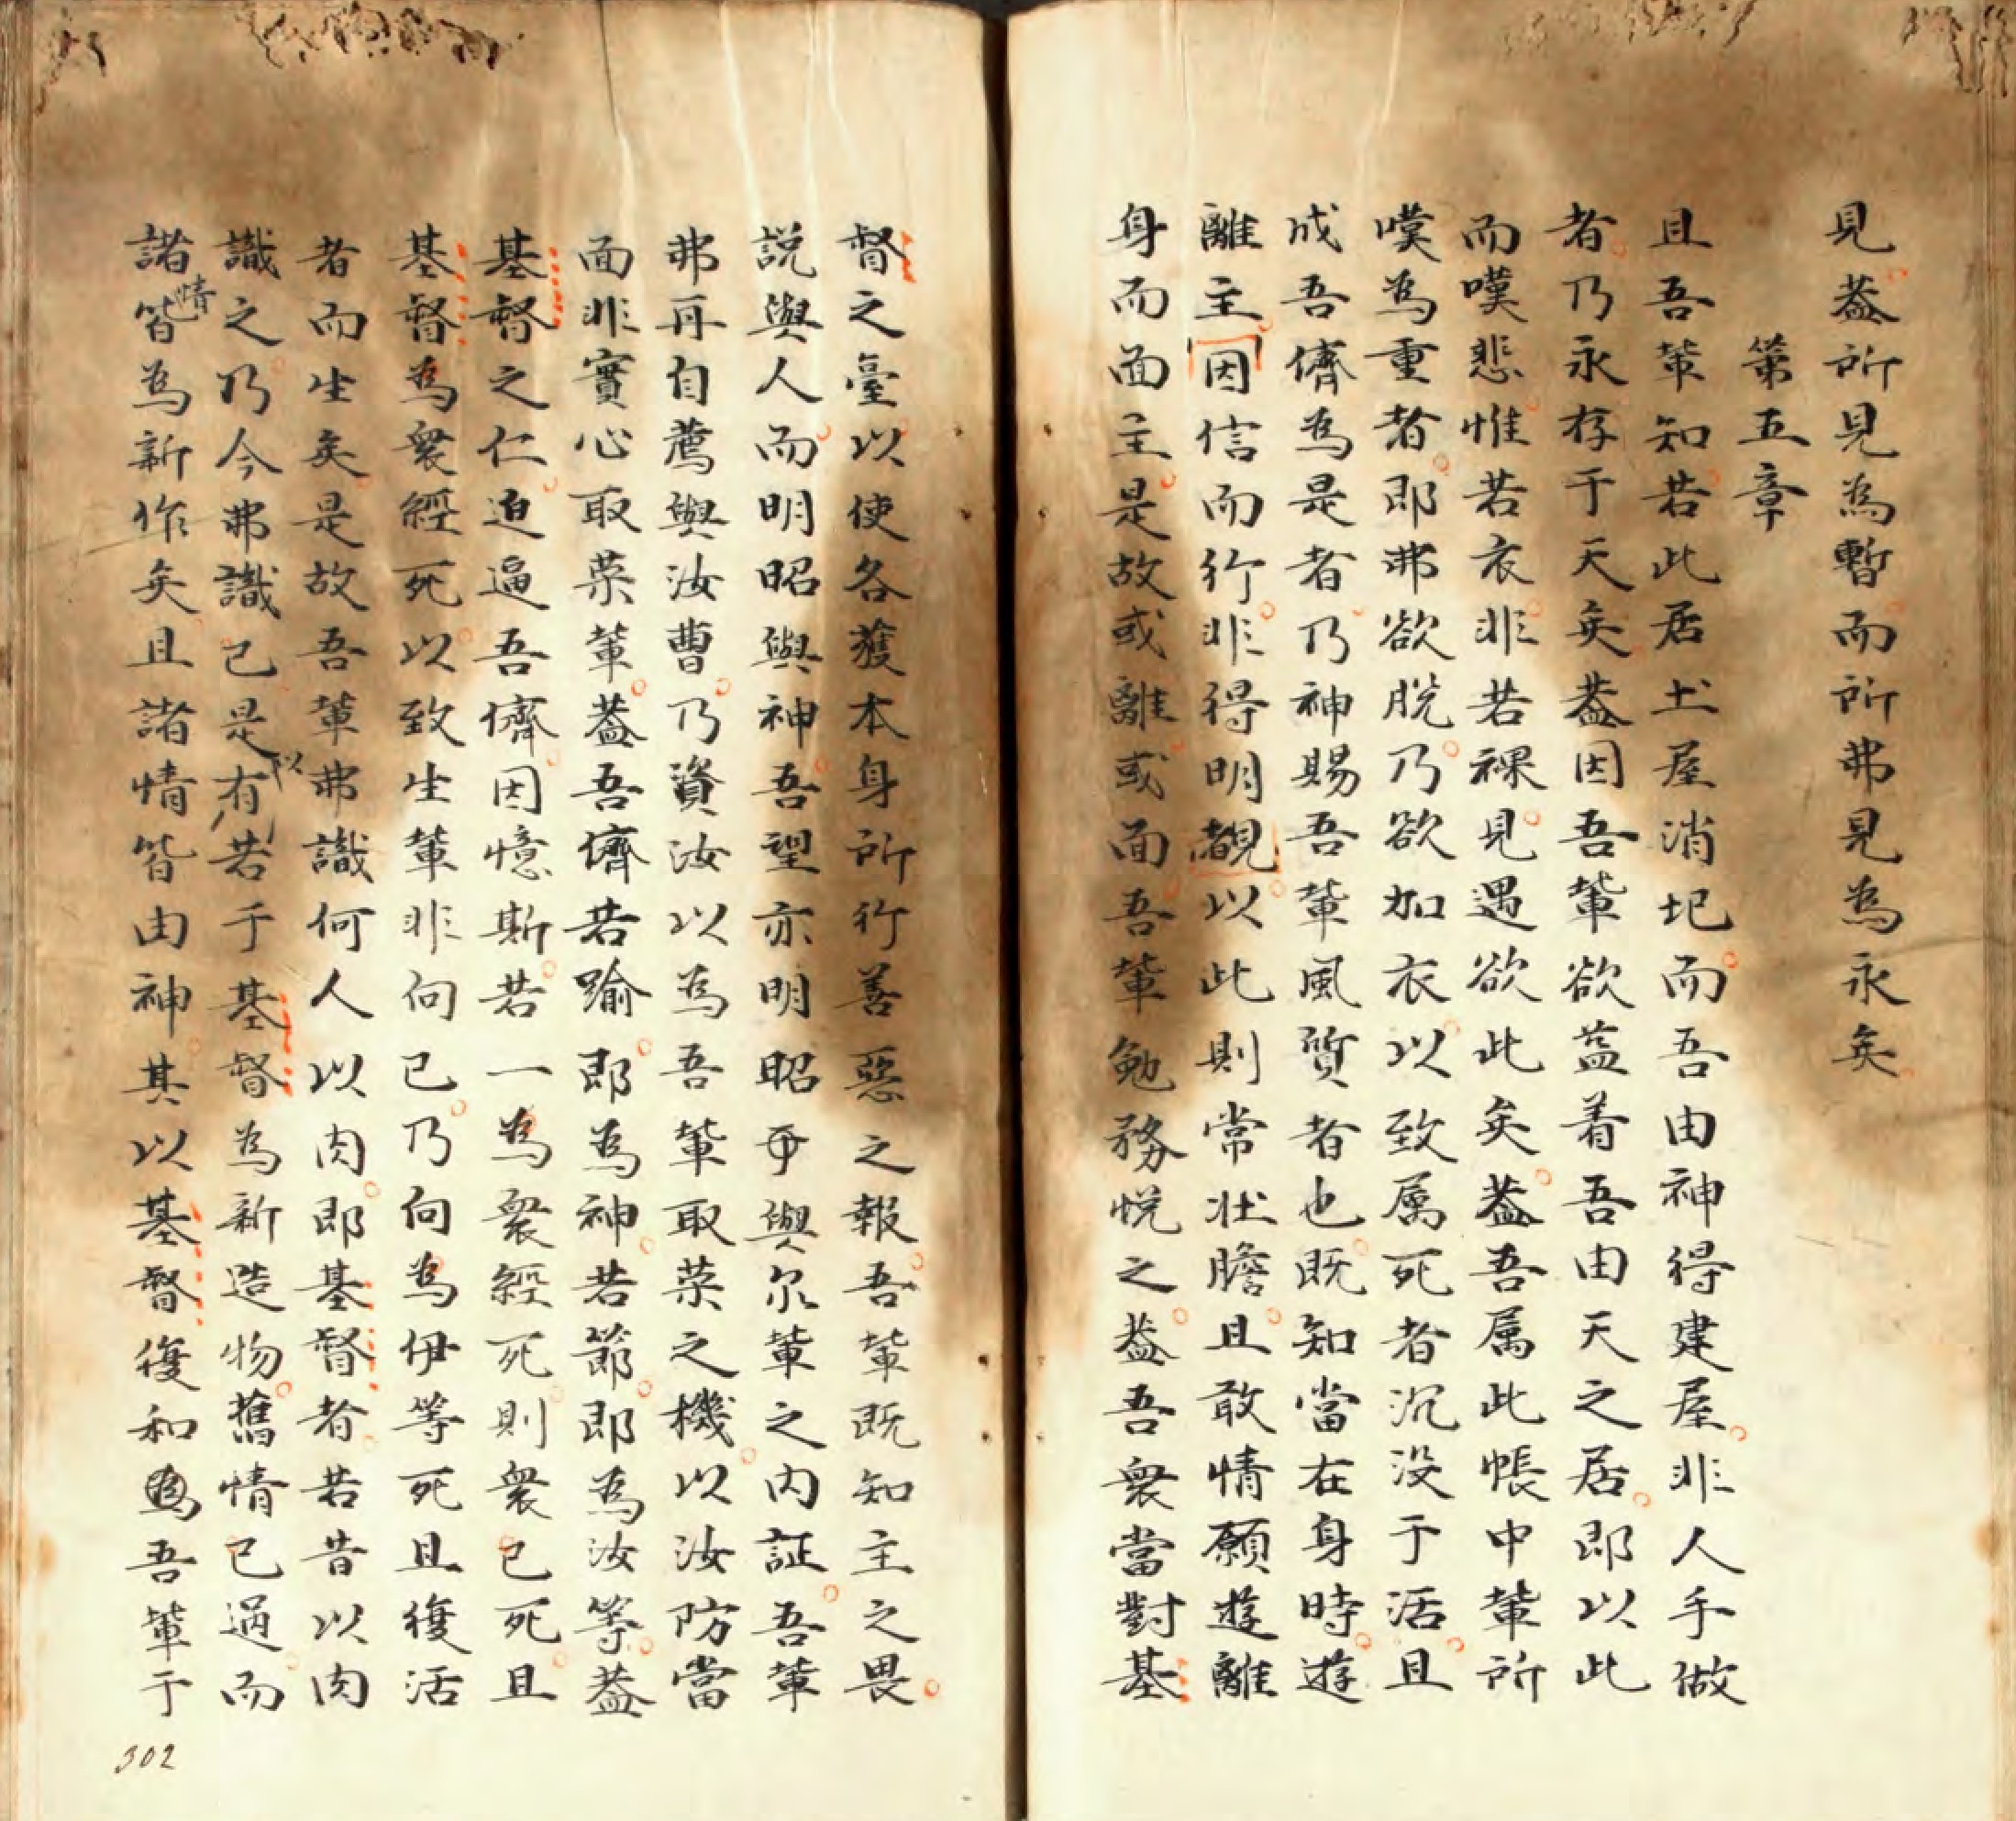 見蓋所見為暫而所弗見為永矣
第五章
且吾輩知若此居土屋消圯而吾由神得建屋非人手做
者乃永存于天矣蓋因吾輩欲蓋着吾由天之居即以此
而嘆悲惟若衣非若裸見遇欲此矣蓋吾属此帳中輩所
嘆為重者即弗欲脱乃欲加衣以致属死者沉没于活且
成吾儕為是者乃神賜吾輩風質者也既知當在身時遊
離主因信而行非得明覩以此則常壮膽且敢情願遊離
身而面主是故或離或面吾輩勉務悦之蓋吾衆當對基
督之臺以使各獲本身所行善惡之報吾輩既知主之畏
説與人而明昭與神吾望亦明昭乎與尔輩之内証吾輩
弗再自薦與汝曹乃資汝以為吾輩取荣之機以汝防當
面非實心取荣輩蓋吾儕若踰即為神若節即為汝等蓋
基督之仁迫逼吾儕因憶斯若一為衆經死則衆已死且
基督為衆經死以致生輩非向已乃向為伊等死且復活
者而生矣是故吾輩弗識何人以肉即基督者若昔以肉
識之乃今弗識已是以有若于基督為新造物舊情已過而
諸情皆為新作矣且諸情皆由神其以基督復和為吾輩于
302